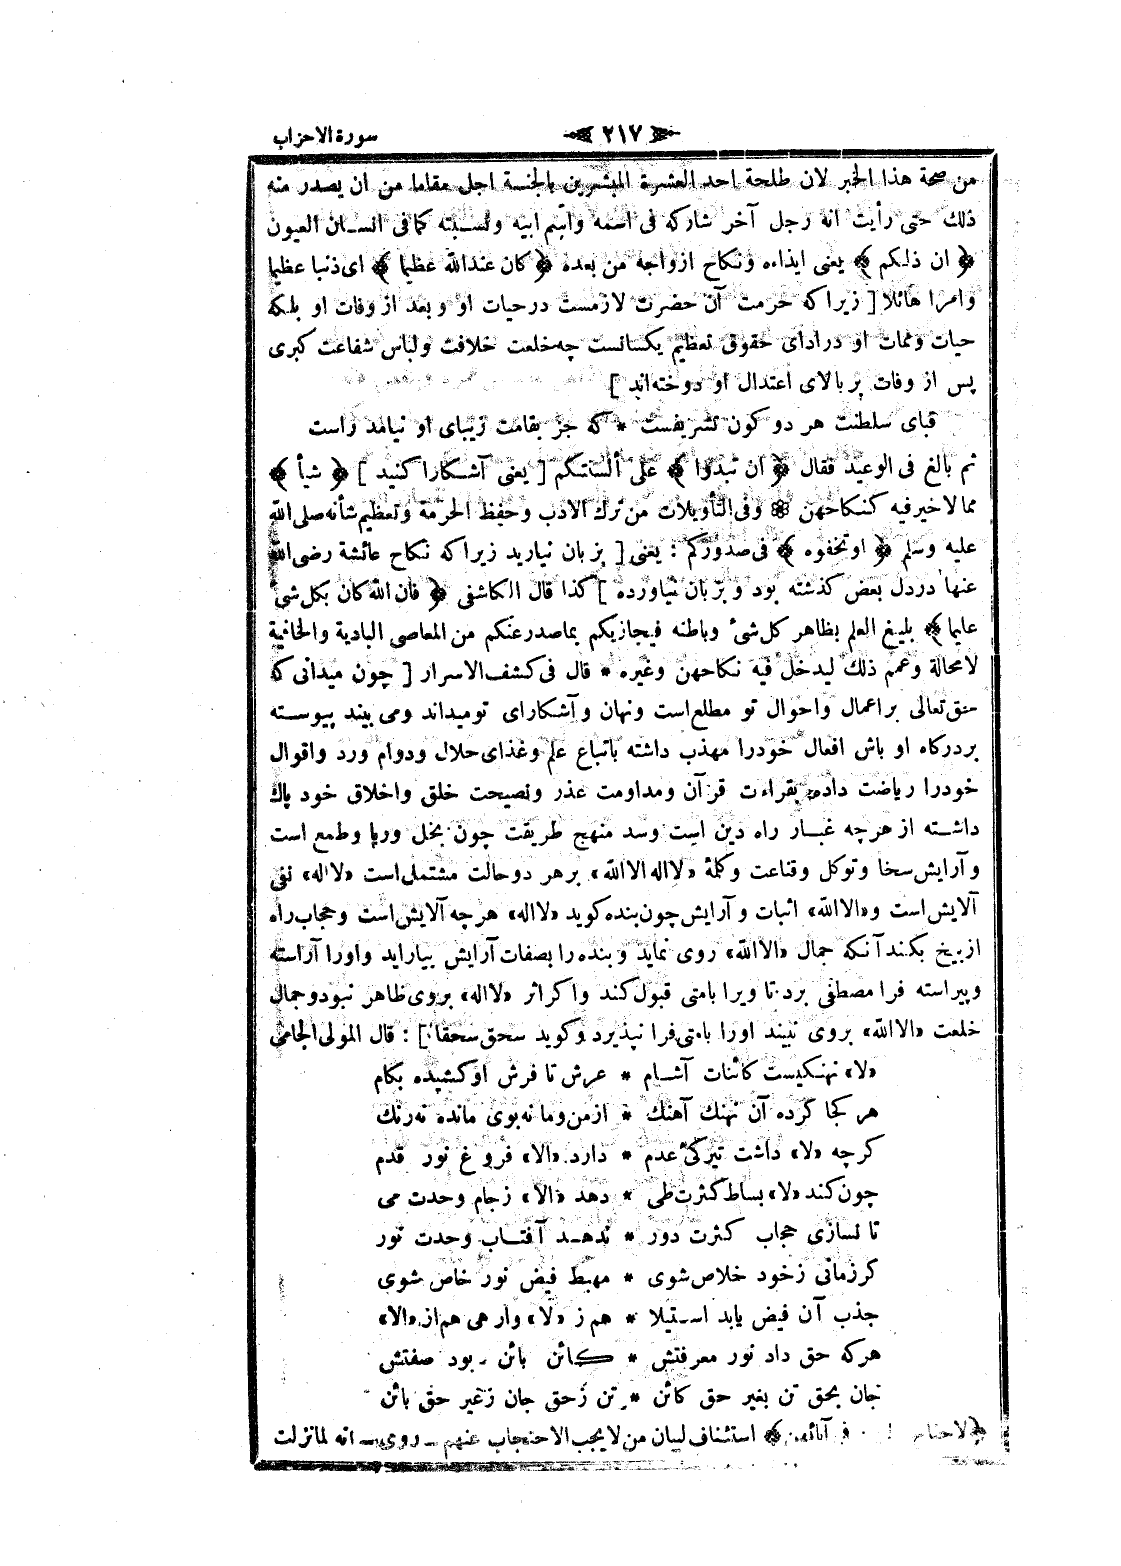 ﴿ ٢١٧ ﴾ سورة الاحزاب
من صحة هذا الخبر لان طلحة احد العشرة المبشرين بالجنسة اجل مقاما من ان يصدر منه
ذلك حتى رأيت انه رجل آخر شاركه فى اسمه واسم ابيه ونسبته كما فى انسان العيون
﴿ ان ذلكم ﴾ يعنى ايذاءه ونكاح ازواجه من بعده ﴿ كان عندالله عظيما ﴾ اى ذنبا عظيما
وامرا هائلا [ زيرا كه حرمت آن حضرت لازمست درحيات او و بعد از وفات او بلكه
حيات وممات او درادای حقوق تعظيم يكسانست چه خلعت خلافت ولباس شفاعت كبرى
پس از وفات بر بالای اعتدال او دوخته‌اند ]
قبای سلطنت هر دو كون تشريفست * كه جز بقامت زيبای او نيامد راست
ثم بالغ فى الوعيد فقال ﴿ ان تبدوا ﴾ على ألسنتكم [ يعنى آشكارا كنيد ] ﴿ شيأ ﴾
مما لا خير فيه كنكاحهن ❁ وفى التأويلات من ترك الادب وحفظ الحرمة وتعظيم شأنه صلى الله
عليه وسلم ﴿ او تخفوه ﴾ فى صدوركم : يعنى [ بزبان نياريد زيرا كه نكاح عائشة رضى الله
عنها دردل بعض كذشته بود و بزبان نياورده ] كذا قال الكاشفى ﴿ فان الله كان بكل شىء
عليما ﴾ بليغ العلم بظاهر كل شىء وباطنه فيجازيكم بماصدر عنكم من المعاصى البادية والخافية
لامحالة وعمم ذلك ليدخل فيه نكاحهن وغيره * قال فى كشف الاسرار [ چون ميدانى كه
حق تعالى بر اعمال واحوال تو مطلع است ونهان و آشكارای توميداند ومى بيند پيوسته
بردركاه او باش افعال خودرا مهذب داشته باتباع علم وغذای حلال ودوام ورد واقوال
خودرا رياضت داده بقراءت قرآن ومداومت عذر ونصيحت خلق واخلاق خود پاك
داشته از هرچه غبار راه دين است وسد منهج طريقت چون بخل وريا وطمع است
و آرايش سخا وتوكل وقناعت وكلمهٔ «لااله الاالله» برهر دوحالت مشتمل است «لااله» نفى
آلايش است و«الاالله» اثبات و آرايش چون بنده كويد «لااله» هرچه آلايش است وحجاب راه
ازبيخ بكند آنكه جمال «الاالله» روى نمايد و بنده را بصفات آرايش بيارايد واورا آراسته
وپيراسته فرا مصطفى برد تا ويرا بامتى قبول كند واكر اثر «لااله» بروى ظاهر نبود وجمال
خلعت «الاالله» بروى نبيند اورا بامتى فرا نپذيرد وكويد سحقا سحقا ] : قال المولى الجامى
«لا» نهنكيست كائنات آشام * عرش تا فرش اوكشيده بكام
هر كجا كرده آن نهنك آهنك * از من وما نه بوى مانده نه رنك
كرچه «لا» داشت تيركئ عدم * دارد «الا» فروغ نور قدم
چون كند «لا» بساط كثرت طى * دهد «الا» زجام وحدت مى
تا نسازى حجاب كثرت دور * ندهد آفتاب وحدت نور
كر زمانى زخود خلاص شوى * مهبط فيض نور خاص شوى
جذب آن فيض يابد استيلا * هم ز «لا» وارهى هم از «الا»
هركه حق داد نور معرفتش * كائن بائن بود صفتش
جان بحق تن بغير حق كائن * تن زحق جان زغير حق بائن
﴿ لاجناح فى آبائهن ﴾ استئناف لبيان من لايجب الاحتجاب عنهم - روى - انه لما نزلت